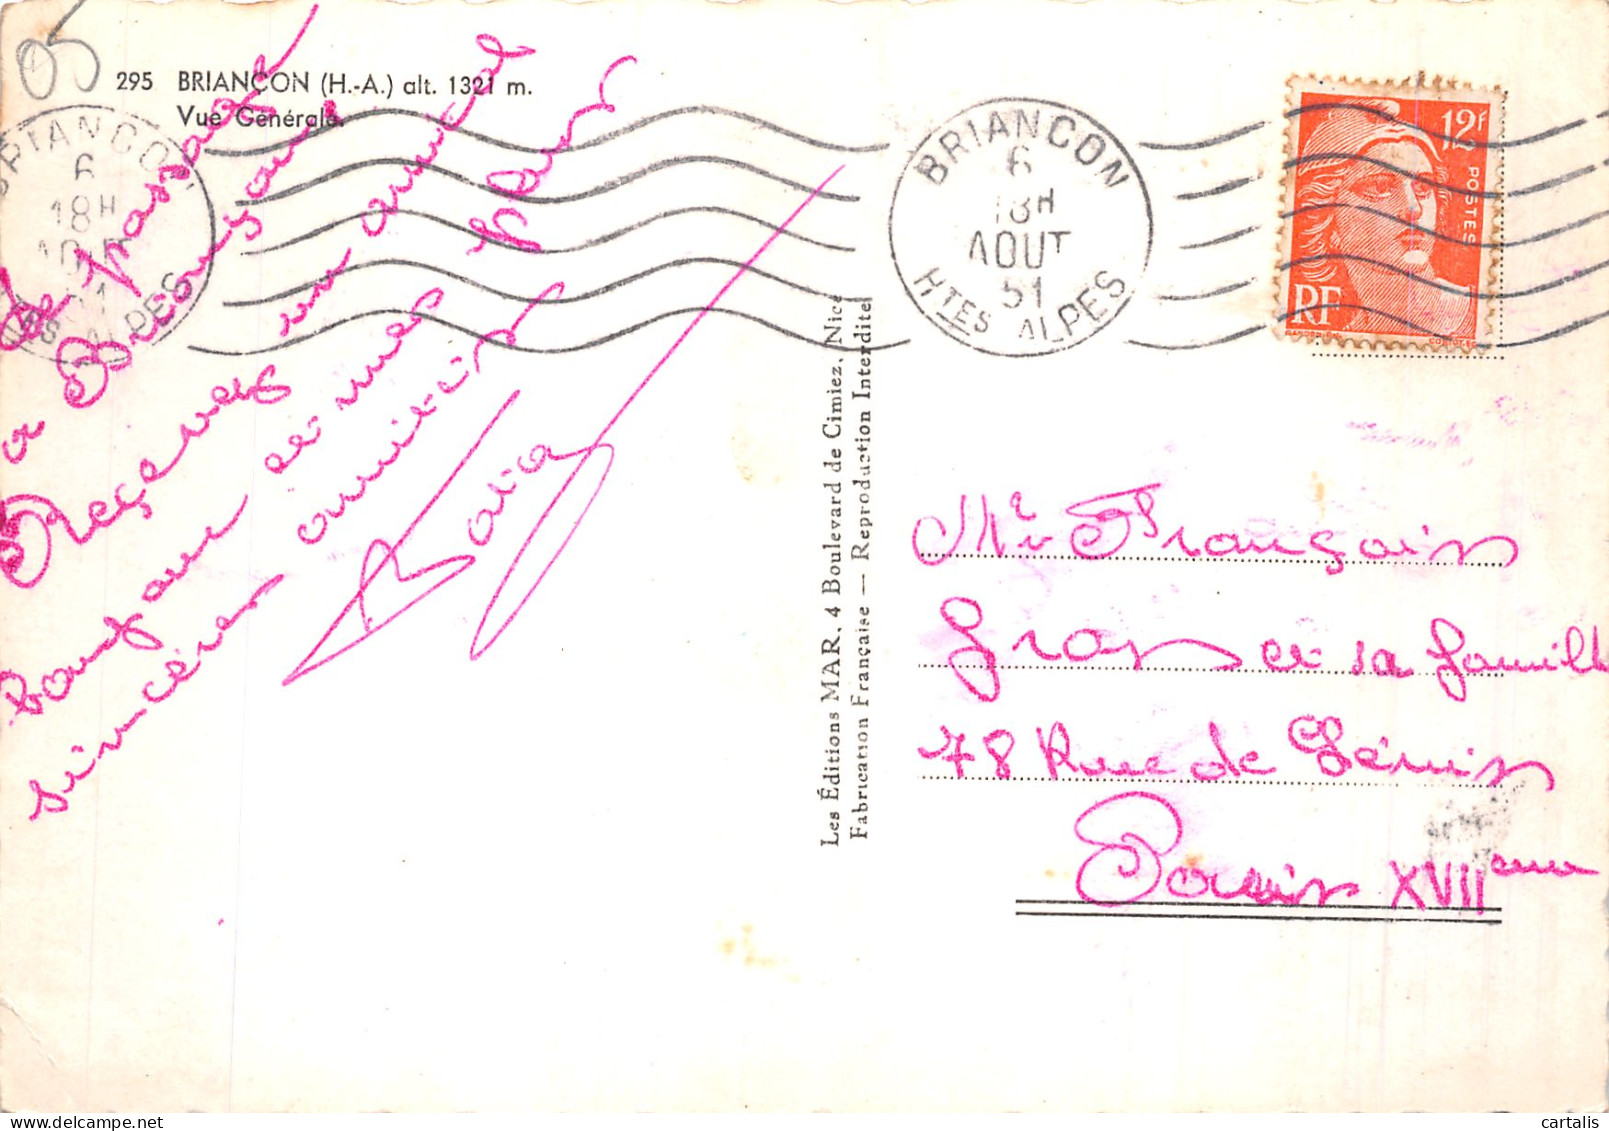 05
295 BRIANÇON (H.-A.) alt. 1321 m.
Vue Générale.
BRIANÇON
6
18H
AOUT
51
HTES ALPES
BRIANÇON
6
18H
AOUT
51
HTES ALPES
12F
POSTES
RF
De passage
a Briançon
Recevez un amical
bonjour et mes
sincères amitiés
Les Éditions MAR, 4 Boulevard de Cimiez, Nice
Fabrication Française — Reproduction Interdite
Mr François
Gras et sa famille
78 Rue de Lévis
Paris XVII eme
cartalis | delcampe.net